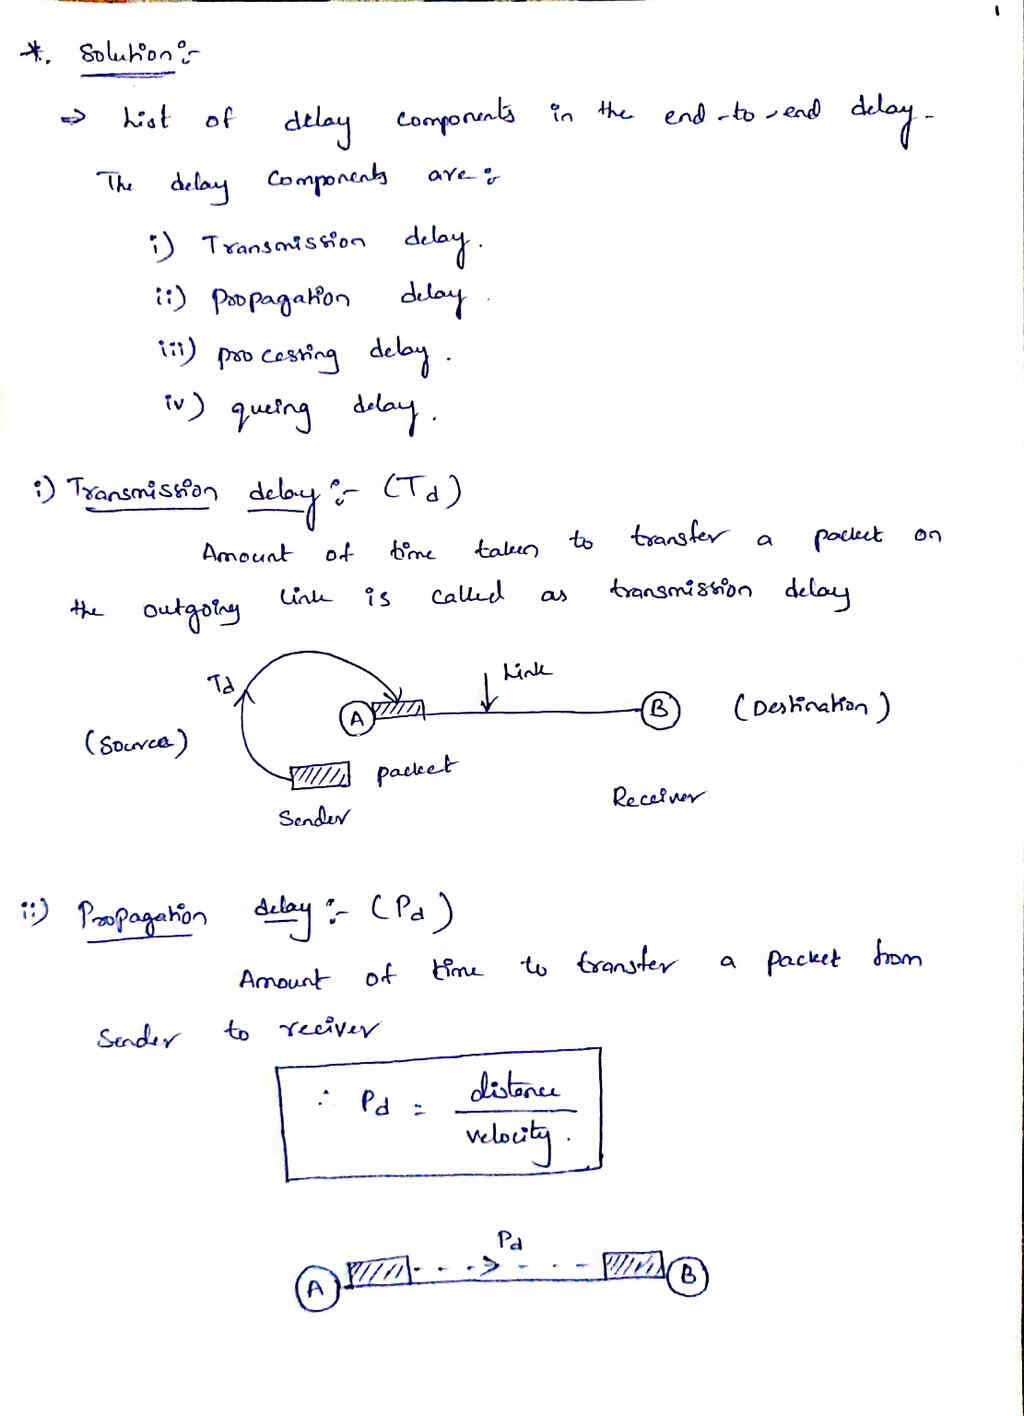 1
*. Solution :-
⇒ List of delay components in the end-to-end delay.
The delay components are :-
i) Transmission delay.
ii) Propagation delay.
iii) processing delay.
iv) queing delay.
i) Transmission delay :- (Td)
Amount of time taken to transfer a packet on
the outgoing link is called as transmission delay
Td
Link
A
B
(Destination)
(Source)
packet
Receiver
Sender
ii) Propagation delay :- (Pd)
Amount of time to transfer a packet from
Sender to reciver
∴ Pd = distance
velocity.
Pd
A
B